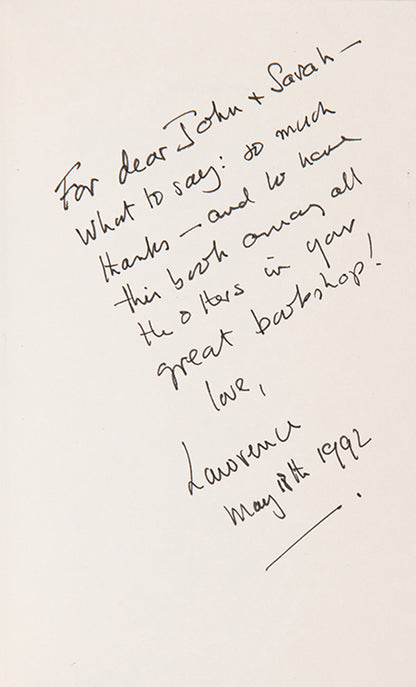 For dear John + Sarah —
What to say: so much
thanks — and to have
this book among all
the others in your
great bookshop!
love,
Lawrence
May 18th 1992